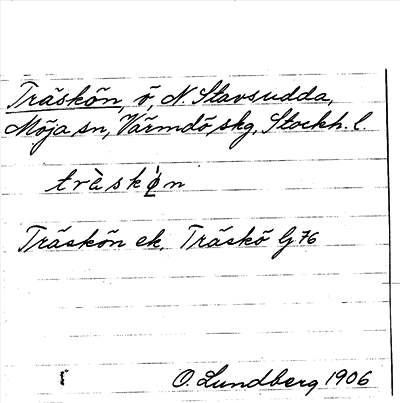 Träskön, ö, N. Stavsudda,
Möja sn, Värmdö skg, Stockh. l.
trä̀skø̨n
Träskön ek, Träskö G 76
O. Lundberg 1906